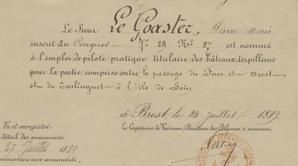 Le Sieur Le Coaster, Pierre Marie
inscrit au Conquet, Fo 29 No 57 est nommé
à l'emploi de pilote pratique titulaire des bateaux torpilleurs
pour la partie comprise entre le passage du Four et Brest
et du Toulinguet à l'Île de
à Brest, le 24 Juillet
Le Capitaine de Vaisseau, Directeur des Défenses sous-marines,
Vu et enregistré
détail des armements
27 Juillet